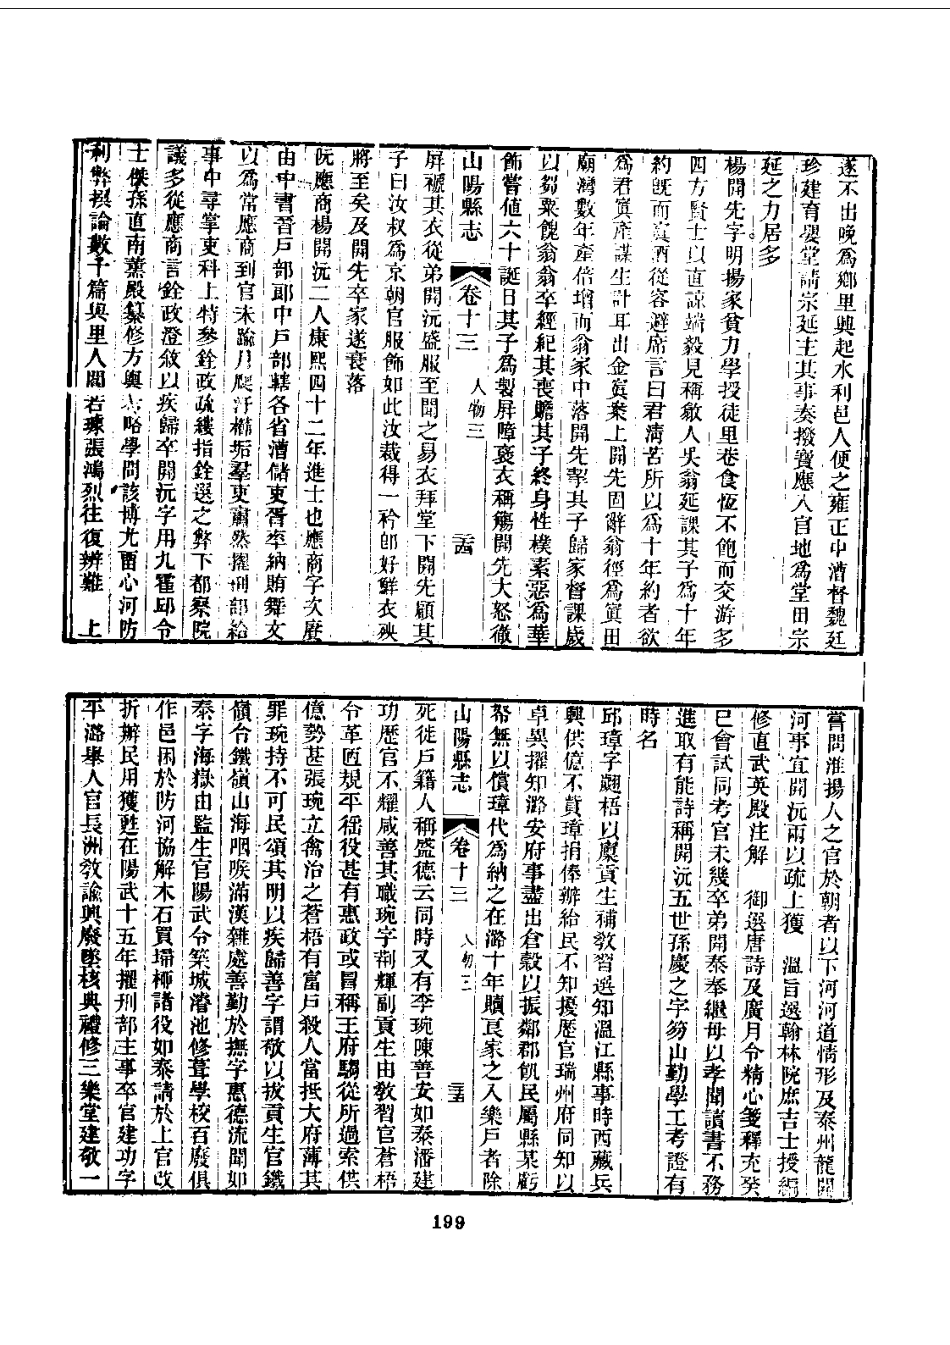 遂不出晚爲鄉里興起水利邑人便之雍正中漕督魏廷
珍建育嬰堂請宗延主其事奏撥寶應入官地爲堂田宗
延之力居多
楊開先字明揚家貧力學授徒里巷食恆不飽而交游多
四方賢士以直諒端毅見稱歙人吳翁延課其子爲十年
約旣而寘酒從容避席言曰君淸苦所以爲十年約者欲
爲君寘產謀生計耳出金寘案上開先固辭翁徑爲寘田
廟灣數年產倍增而翁家中落開先挈其子歸家督課歲
以芻粟餽翁翁卒經紀其喪贍其子終身性樸素惡爲華
飾嘗値六十誕日其子爲製屏障褒衣稱觴開先大怒徹
山陽縣志 卷十三 人物三 二十四
屏褫其衣從弟開沅盛服至聞之易衣拜堂下開先顧其
子曰汝叔爲京朝官服飾如此汝裁得一衿卽好鮮衣殃
將至矣及開先卒家遂衰落
阮應商楊開沅二人康熙四十二年進士也應商字次賡
由中書晉戶部郞中戶部轄各省漕儲吏胥率納賄舞文
以爲常應商到官未踰月爬汙櫛垢羣吏肅然擢刑部給
事中尋掌吏科上特參銓政疏縷指銓選之弊下都察院
議多從應商言銓政澄敘以疾歸卒開沅字用九霍邱令
士傑孫直南薰殿纂修方輿 略學問該博尤畱心河防
利弊撰論數千篇與里人閻若璩張鴻烈往復辨難 上
嘗問淮揚人之官於朝者以下河河道情形及泰州龍開
河事宜開沅兩以疏上獲 溫旨選翰林院庶吉士授編
修直武英殿注解 御選唐詩及廣月令精心箋釋充癸
巳會試同考官未幾卒弟開泰奉繼母以孝聞讀書不務
進取有能詩稱開沅五世孫慶之字笏山勤學工考證有
時名
邱璋字翽梧以廩貢生補敎習選知溫江縣事時西藏兵
興供億不貲璋捐俸辦給民不知擾歷官瑞州府同知以
卓異擢知潞安府事盡出倉穀以振鄰郡飢民屬縣某虧
帑無以償璋代爲納之在潞十年贖良家之入樂戶者除
山陽縣志 卷十三 人物三 二十五
死徒戶籍人稱盛德云同時又有李琬陳善安如泰潘建
功歷官不耀咸善其職琬字荆輝副貢生由敎習官蒼梧
令革匭規平徭役甚有惠政或冒稱王府騶從所過索供
億勢甚張琬立禽治之蒼梧有富戶殺人當抵大府薄其
罪琬持不可民頌其明以疾歸善字謂敬以拔貢生官鐵
嶺合鐵嶺山海咽喉滿漢雜處善勤於撫字惠德流聞如
泰字海嶽由監生官陽武令築城濬池修葺學校百廢俱
作邑困於防河協解木石買埽柳諸役如泰請於上官改
折辦民用獲甦在陽武十五年擢刑部主事卒官建功字
平潞舉人官長洲敎諭興廢墜核典禮修三樂堂建敬一
199